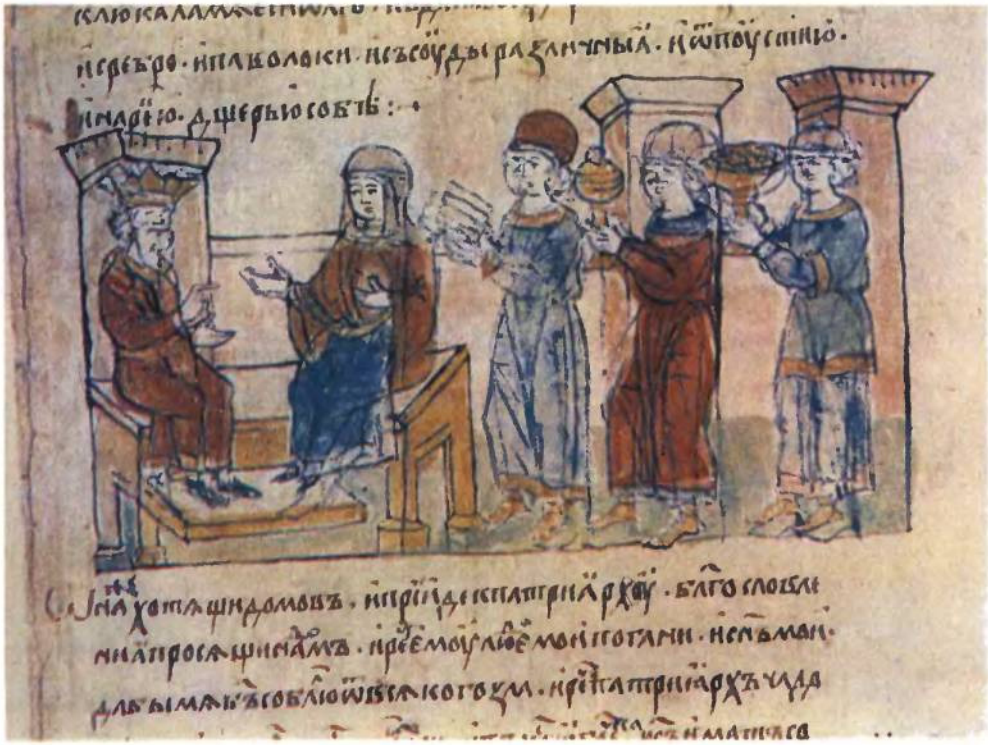 клюкала мѧ еси
исребро · ипаволоки · исъсоуды различныѧ · иѿпоусти ю ·
инарⷱе ю · дщерью собѣ :·
Ѡнаже хотѧщи домовъ · ипрїиде кпатриархоу · блгословле
ниѧ просѧщи надомъ · ирⷱе емоу люⷣе мои погани · иснъ мои ·
дабы мѧ бъ соблюⷧ ѿвсѧкого зла · ирⷱе патриархъ чадо